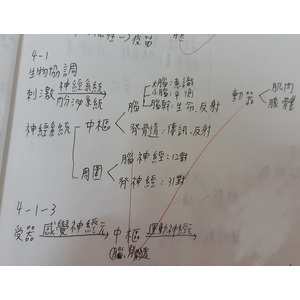 疫苗
4-1
生物協調
刺激 神經系統 內分泌系統 動器 肌肉 腺體
大腦:意識
小腦:平衡
腦幹:生命.反射
腦
神經系統 中樞
脊髓:傳訊.反射
周圍
腦神經:12對
脊神經:31對
4-1-3
受器 感覺神經元 中樞 運動神經元